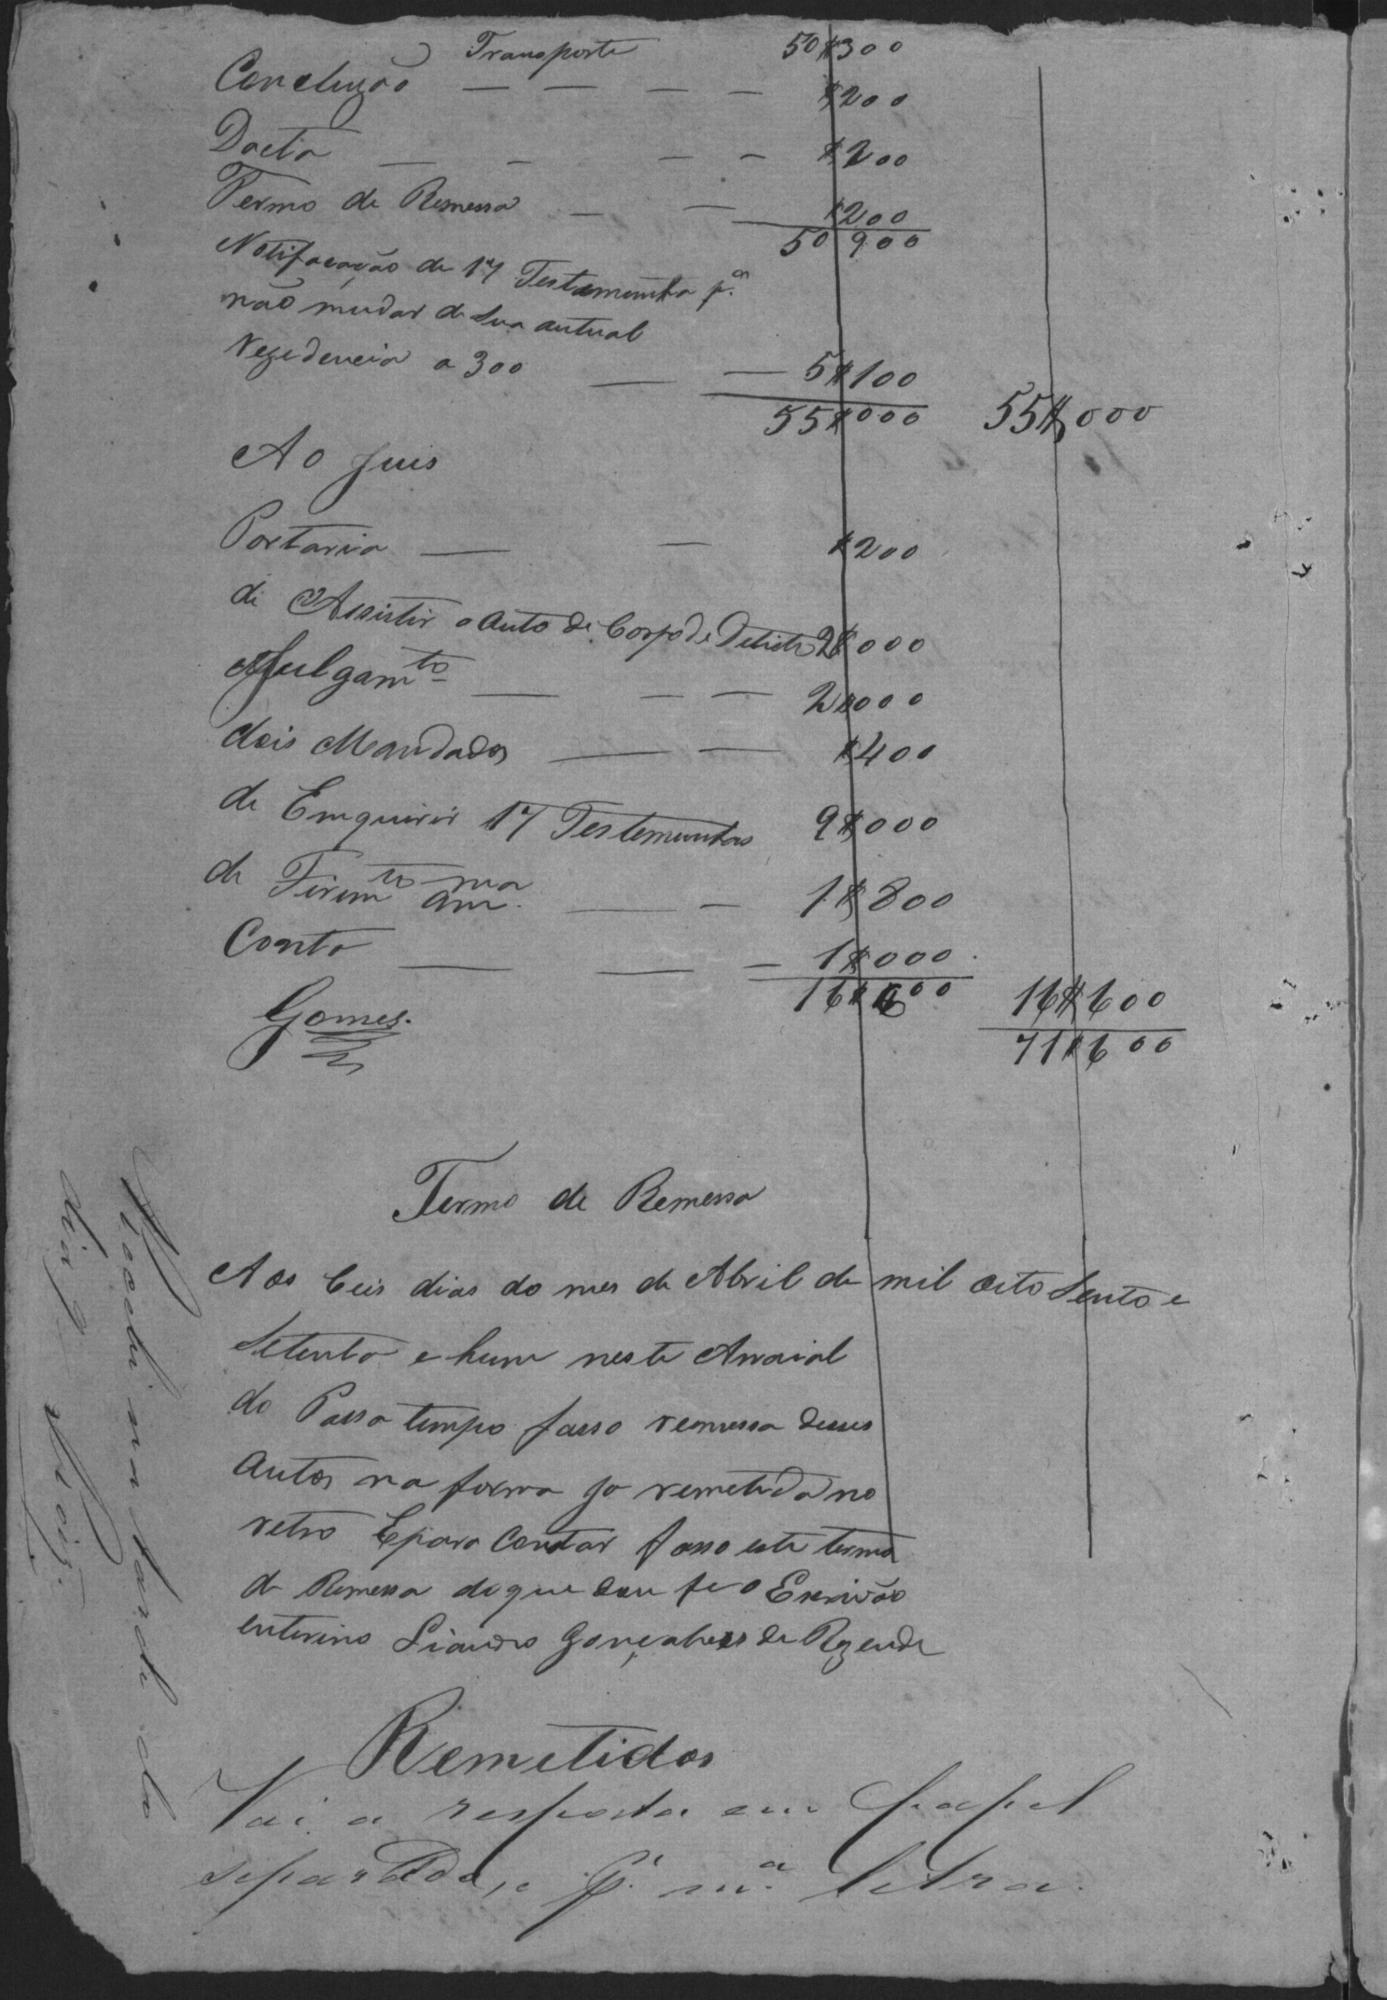 Transporte 50$300
Concluzão — — — — $200
Dacta — — — — $200
Termo de Remessa — — $200
50 900
Notifacação de 17 Testemunha p.ª
não mudar de sua autual
rezedencia a 300 — — 5$100
55$000 55$000
Ao Juis
Portaria — — $200
de Assistir o auto de Corpo de Delicto 2$000
Julgam.to — — — 2$000
dois Mandados — — $400
de Emquirir 17 Testemunhas 9$000
de — — 1$800
Conta — — — 1$000
16$600 16$600
Gomes. 71$600
Termo de Remessa
Aos Ceis dias do mes de Abril de mil oito Sento e
Setenta e hum neste Arraial
do Passa tempo fasso remessa desses
autos na forma ja remetida no
retro Epara Constar fasso este termo
de Remessa doque dou fe o Escrivão
enterino Liandro Gonçalves de Rezende
Remetidos
Vai a resposta em papel
separado, e p.r m.ª letra.
dia 9